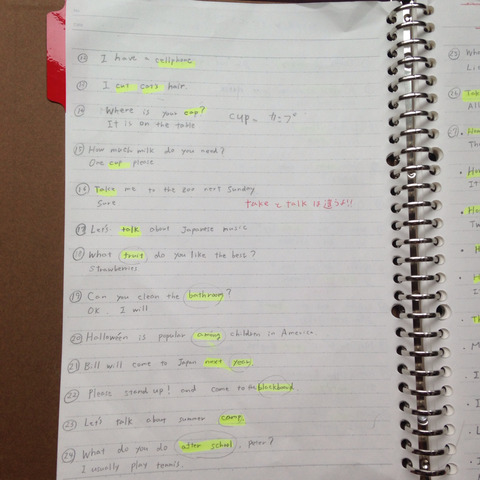 I have a cellphone
I cut hair.
Where is your cap? cup = カップ
It is on the table
⑮ How much milk do you need?
One cup please
⑯ Take me to the zoo next Sunday
Sure takeとtalkは違うよ!!
⑰ Let's talk about Japanese music
⑱ What fruit do you like the best?
Strawberries
⑲ Can you clean the bathroom?
OK I will
⑳ Halloween is popular among children in America.
㉑ Bill will come to Japan next year
㉒ Please stand up! and come to the blackboard
㉓ Let's talk about summer camp
㉔ What do you do after school, Peter?
I usually play tennis.